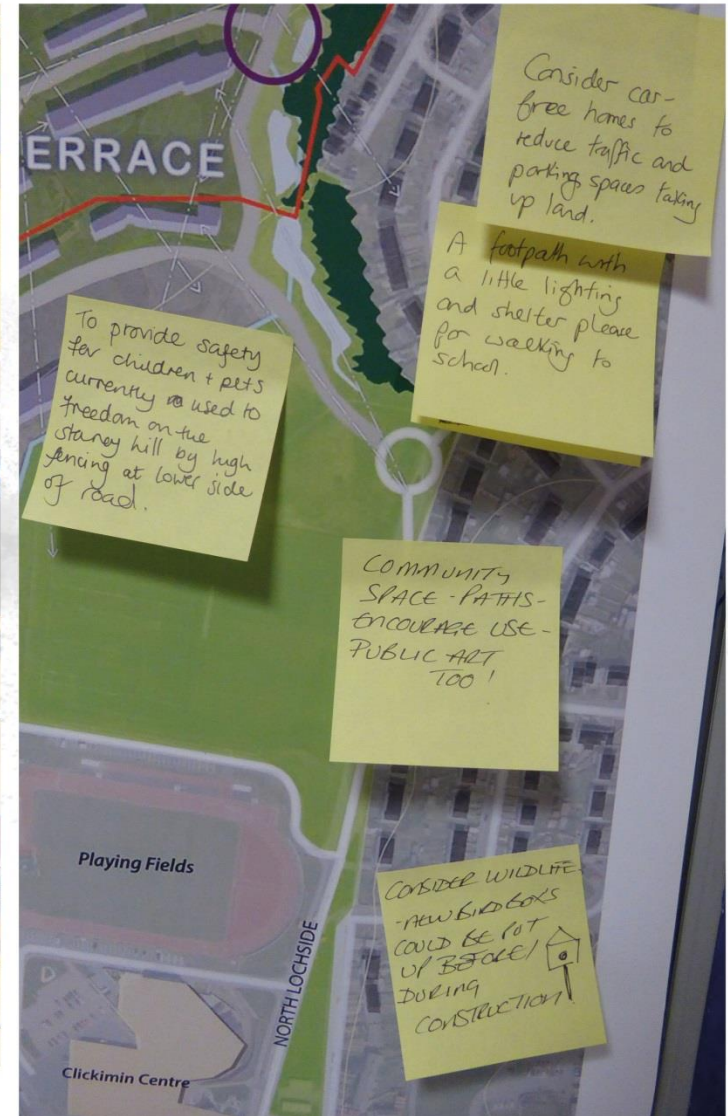 Consider car-
free homes to
reduce traffic and
parking spaces taking
up land.
A footpath with
a little lighting
and shelter please
for walking to
school.
ERRACE
To provide safety
for children + pets
currently used to
freedom on the
staney hill by high
fencing at lower side
of road.
COMMUNITY
SPACE - PATHS -
ENCOURAGE USE -
PUBLIC ART
TOO!
Playing Fields
CONSIDER WILDLIFE
- NEW BIRD BOXS
COULD BE PUT
UP BEFORE/
DURING
CONSTRUCTION!
NORTH LOCHSIDE
Clickimin Centre